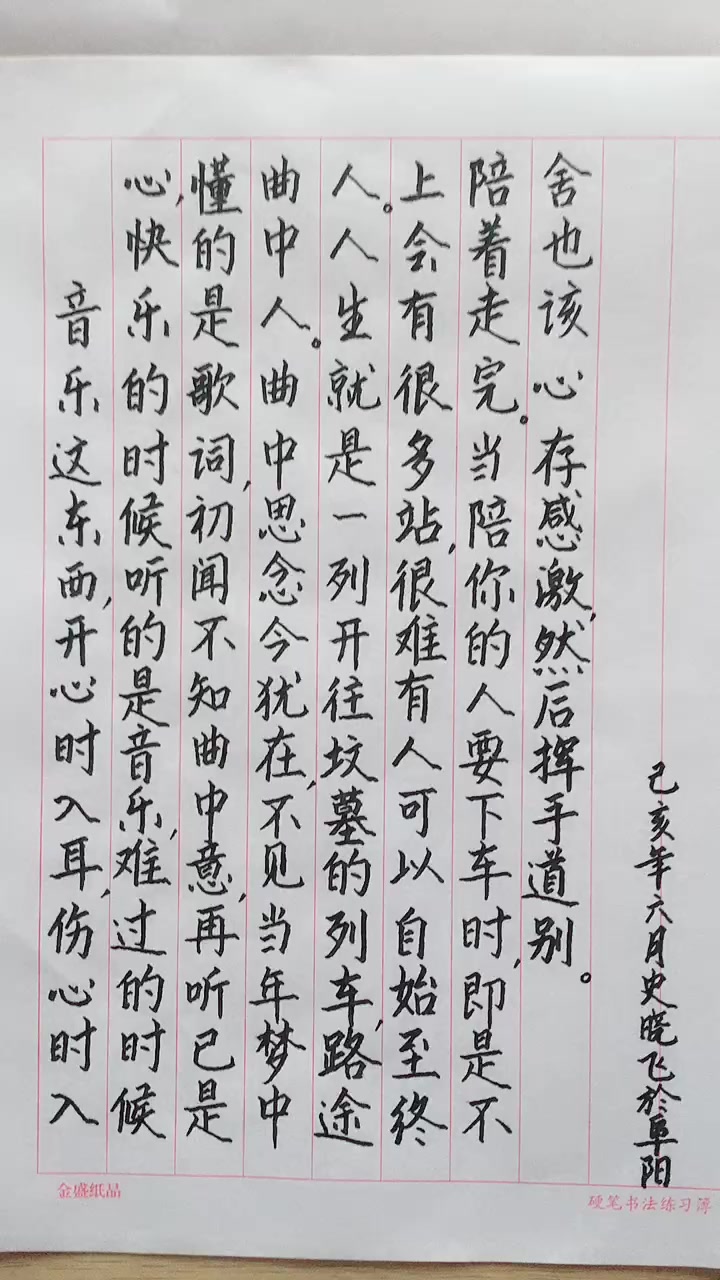 音乐这东西,开心时入耳,伤心时入
心,快乐的时候听的是音乐,难过的时候
懂的是歌词,初闻不知曲中意,再听已是
曲中人。曲中思念今犹在,不见当年梦中
人。人生就是一列开往坟墓的列车,路途
上会有很多站,很难有人可以自始至终
陪着走完。当陪你的人要下车时,即是不
舍也该心存感激,然后挥手道别。
己亥年六月史晓飞於阜阳
金盛纸品
硬笔书法练习簿